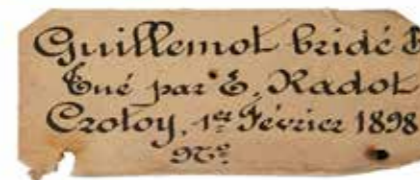 Guillemot bridé
Tué par E. Radot
Crotoy, 1er Février 1898